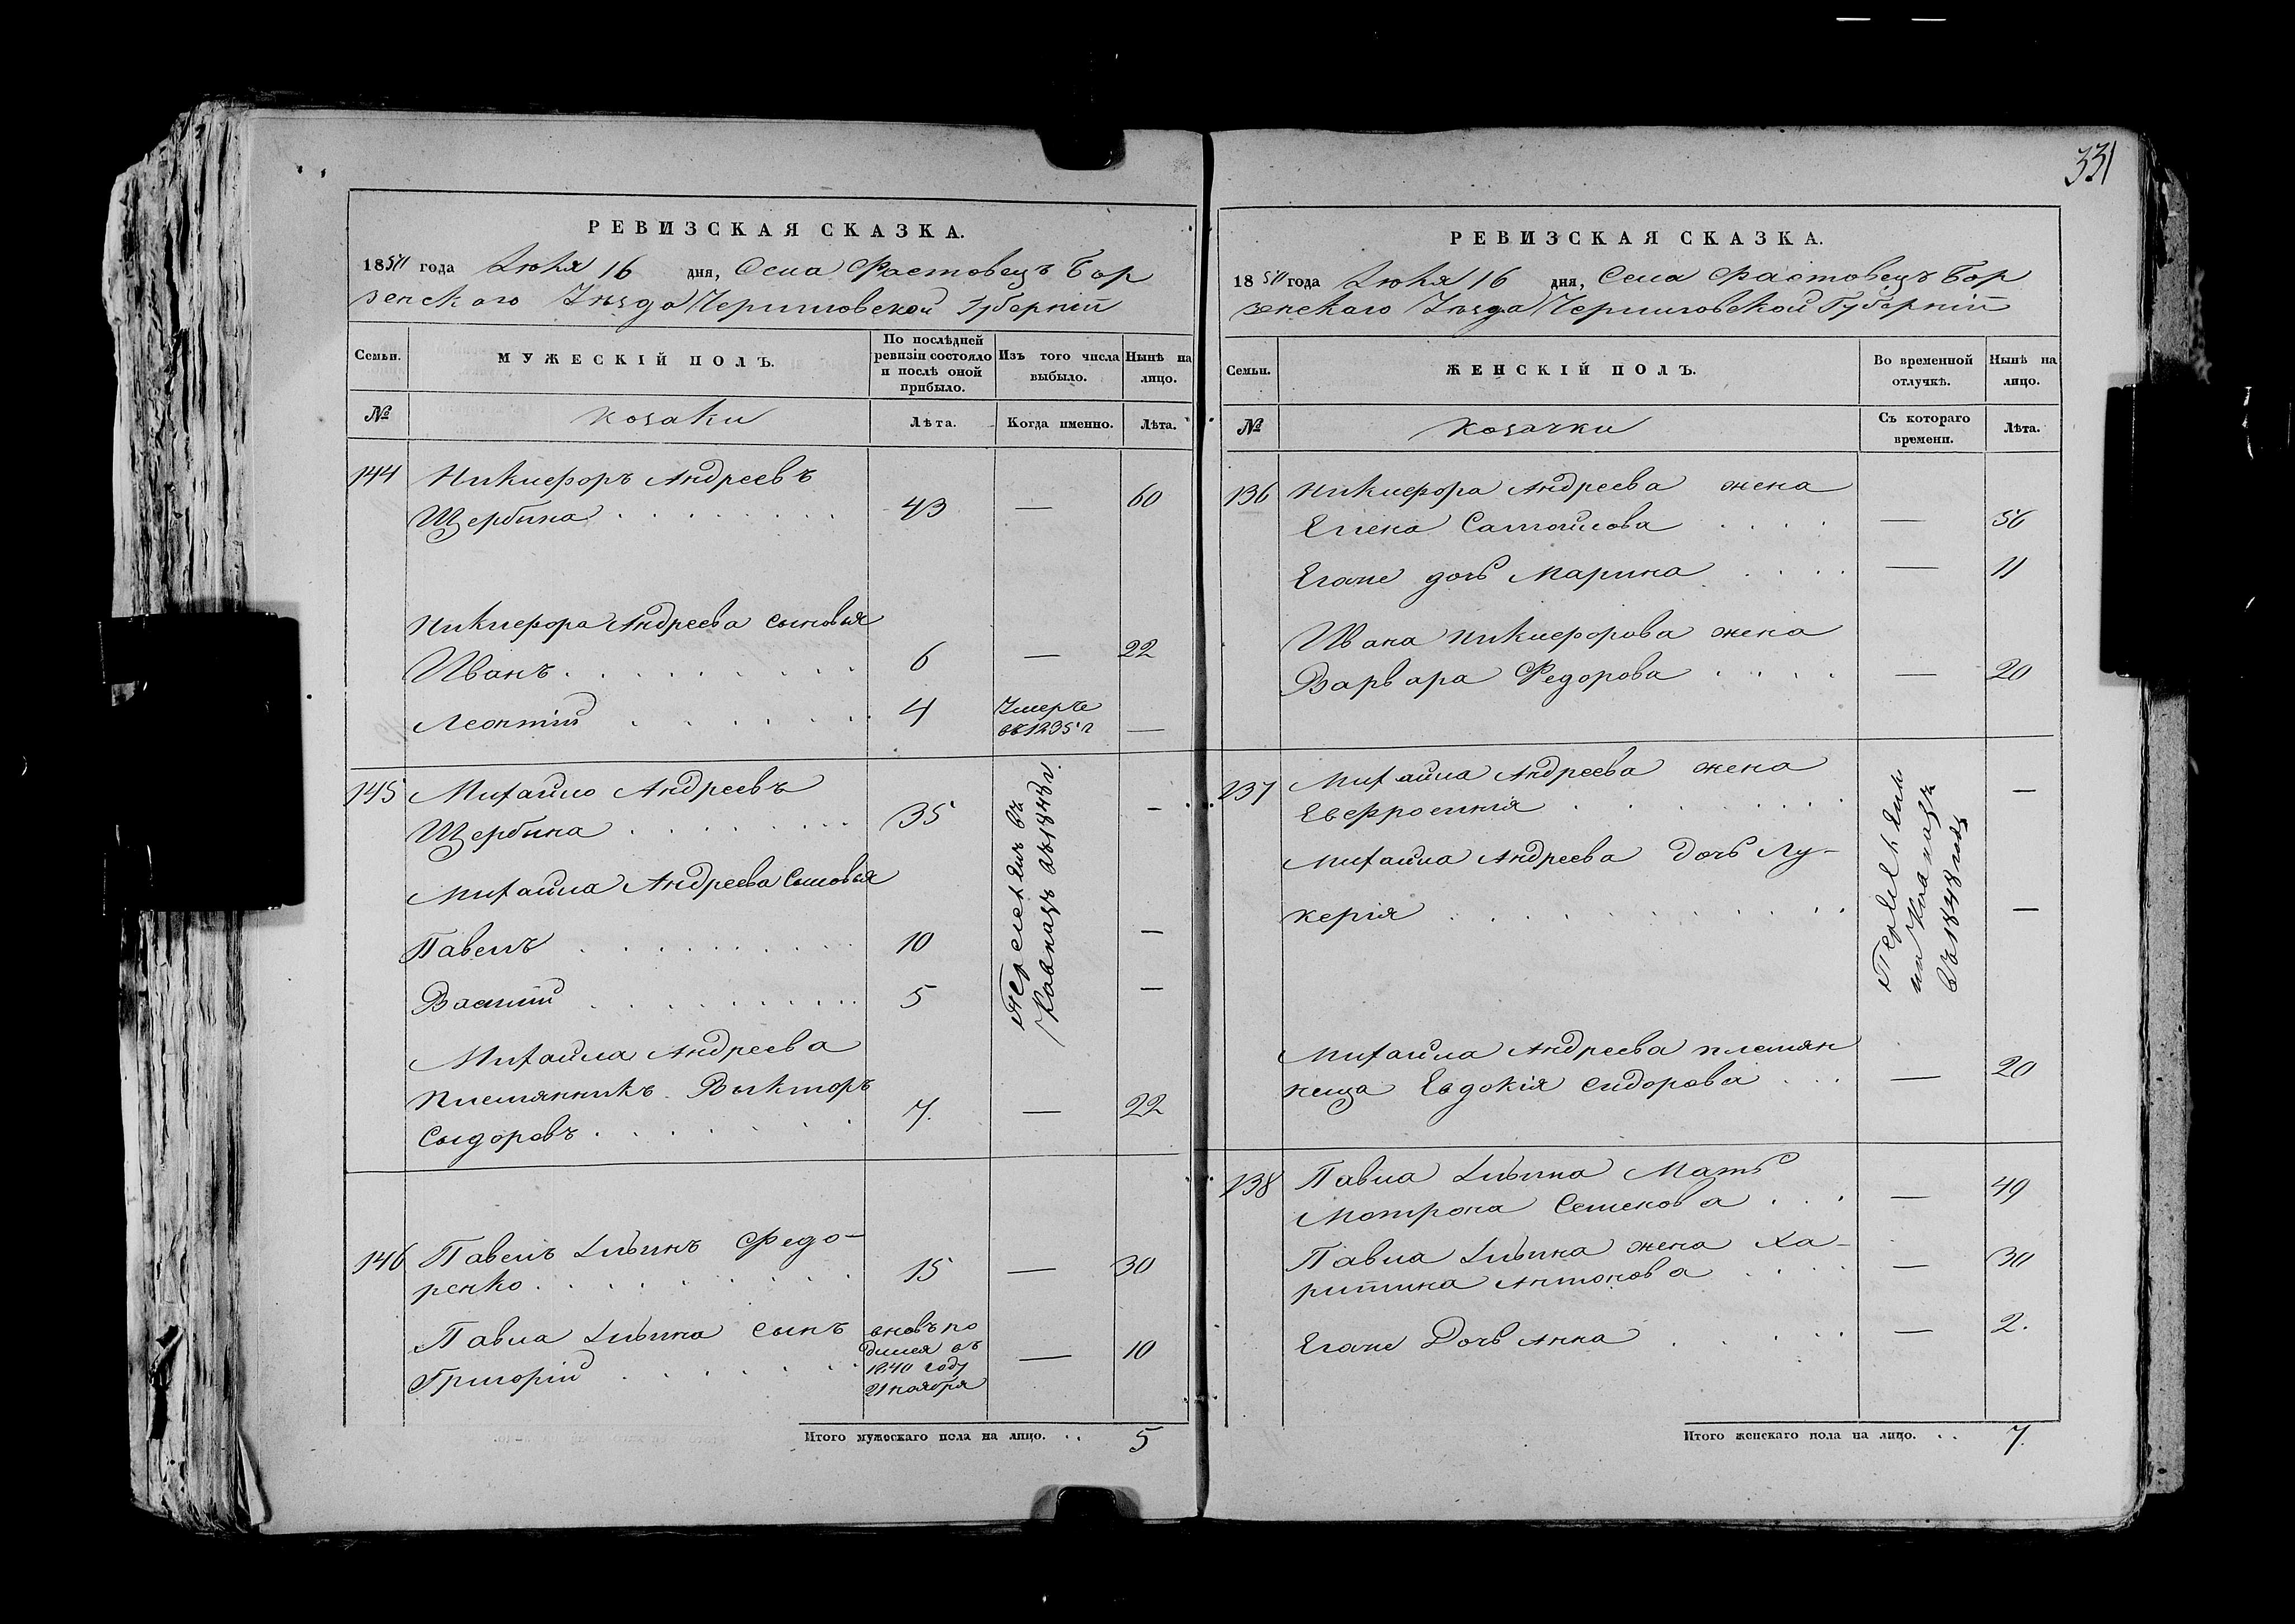 331
РЕВИЗСКАЯ СКАЗКА.
1850 года Іюня 16 дня, Села Фастовецъ Бор
зенскаго Уѣзда Черниговской Губерніи
Семьи.
МУЖЕСКІЙ ПОЛЪ.
По послѣдней ревизіи состояло и послѣ оной прибыло.
Изъ того числа выбыло.
Нынѣ на лицо.
№
козаки
Лѣта.
Когда именно.
Лѣта.
144 Никифоръ Андреевъ
Щербина 43 — 60
Никифора Андреева сыновья
Иванъ 6 — 22
Леонтій 4 Умеръ —
145 Михайло Андреевъ
Щербина 35 —
Михайла Андреева сыновья
Павелъ 10 —
Василій 5 —
Переселенъ въ
Кавказъ въ 1848 г.
Михайла Андреева
племянникъ Выкторъ
Сыдоровъ 7. — 22
146 Павелъ Ильинъ Федо-
ренко 15 — 30
Павла Ильина сынъ
Григорій — 10
вновь ро
дился въ
1840 году
21 ноября
Итого мужескаго пола на лицо. . . 5
РЕВИЗСКАЯ СКАЗКА.
1850 года Іюня 16 дня, Села Фастовецъ Бор
зенскаго Уѣзда Черниговской Губерніи
Семьи.
ЖЕНСКІЙ ПОЛЪ.
Во временной отлучкѣ.
Нынѣ на лицо.
№
козачки
Съ котораго времени.
Лѣта.
136 Никифора Андреева жена
Елена Самойлова — 56
Егоже дочь Марина — 11
Ивана Никифорова жена
Варвара Федорова — 20
137 Михайла Андреева жена
Евфросинія —
Михайла Андреева дочь Лу-
керія —
въ 1848 году
Михайла Андреева племян
ница Евдокія Сидорова — 20
138 Павла Ильина Мать
Мотрона Семенова — 49
Павла Ильина жена Ха-
ритина Антонова — 30
Егоже Дочь Анна — 2.
Итого женскаго пола на лицо. . . 7.